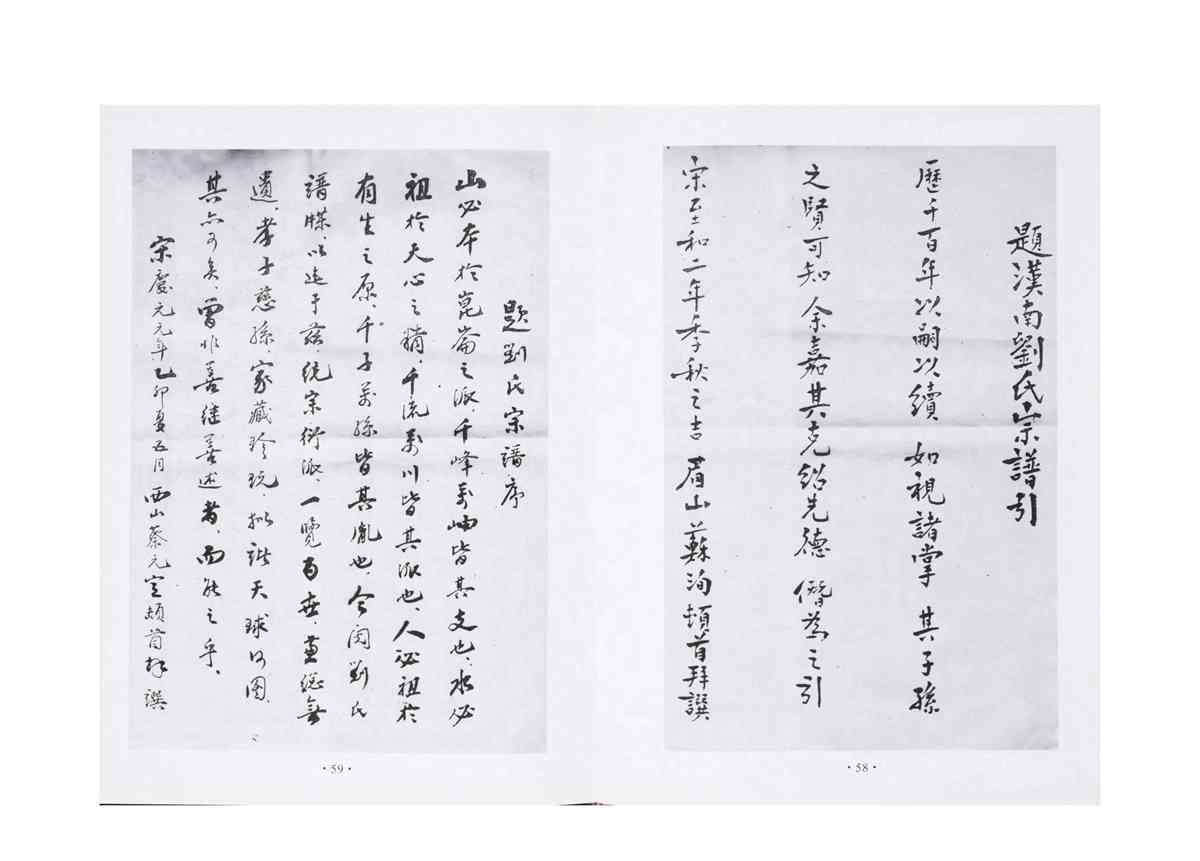 題漢南劉氏宗譜引
歷千百年以嗣以續如視諸掌其子孫
之賢可知余嘉其克紹先德僭為之引
宋至和二年季秋之吉眉山蘇洵頓首拜譔
·58·
題劉氏宗譜序
山必本於崑崙之派、千峰萬岫皆其支也、水必
祖於天心之精、千流萬川皆其派也、人必祖於
有生之原、千子萬孫皆其胤也、今閱劉氏
譜牒、以迄于茲、統宗衍派、一覽無遺、
遺、孝子慈孫、家藏珍玩、擬諸天球河圖、
其亦可矣、曾非善继善述者、而能之乎、
宋慶元元年乙卯夏五月西山蔡元定頓首拜譔
·59·